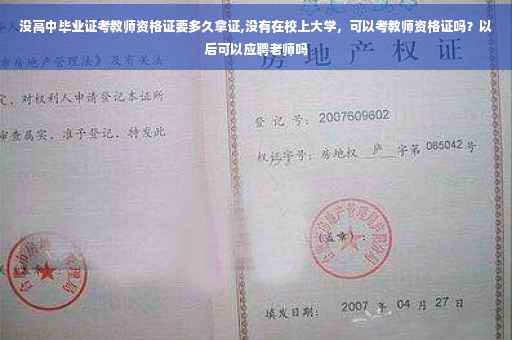 没高中毕业证考教师资格证要多久拿证,没有在校上大学，可以考教师资格证吗？以
后可以应聘老师吗
房地产权证
产管理法》及有关法
定，对权利人申请登记本证所
审查属实，准予登记，特发此
登记号：2007609602
权证字号：房地权 庐 字第 085042 号
（盖章）：
填发日期：2007 年 04 月 27 日